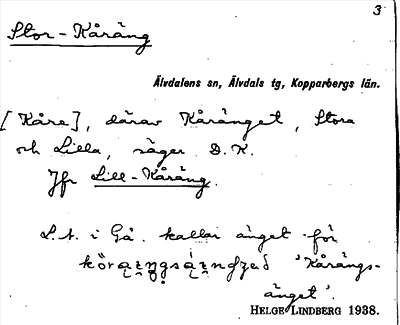 3
Stor-Kåräng
Älvdalens sn, Älvdals tg, Kopparbergs län.
[Kåre], därav Kåränget, Stora
och Lilla, säger D. K.
Jfr Lill-Kåräng.
L.A. i Gå. kallar änget för
'Kårängs-
änget'.
HELGE LINDBERG 1938.